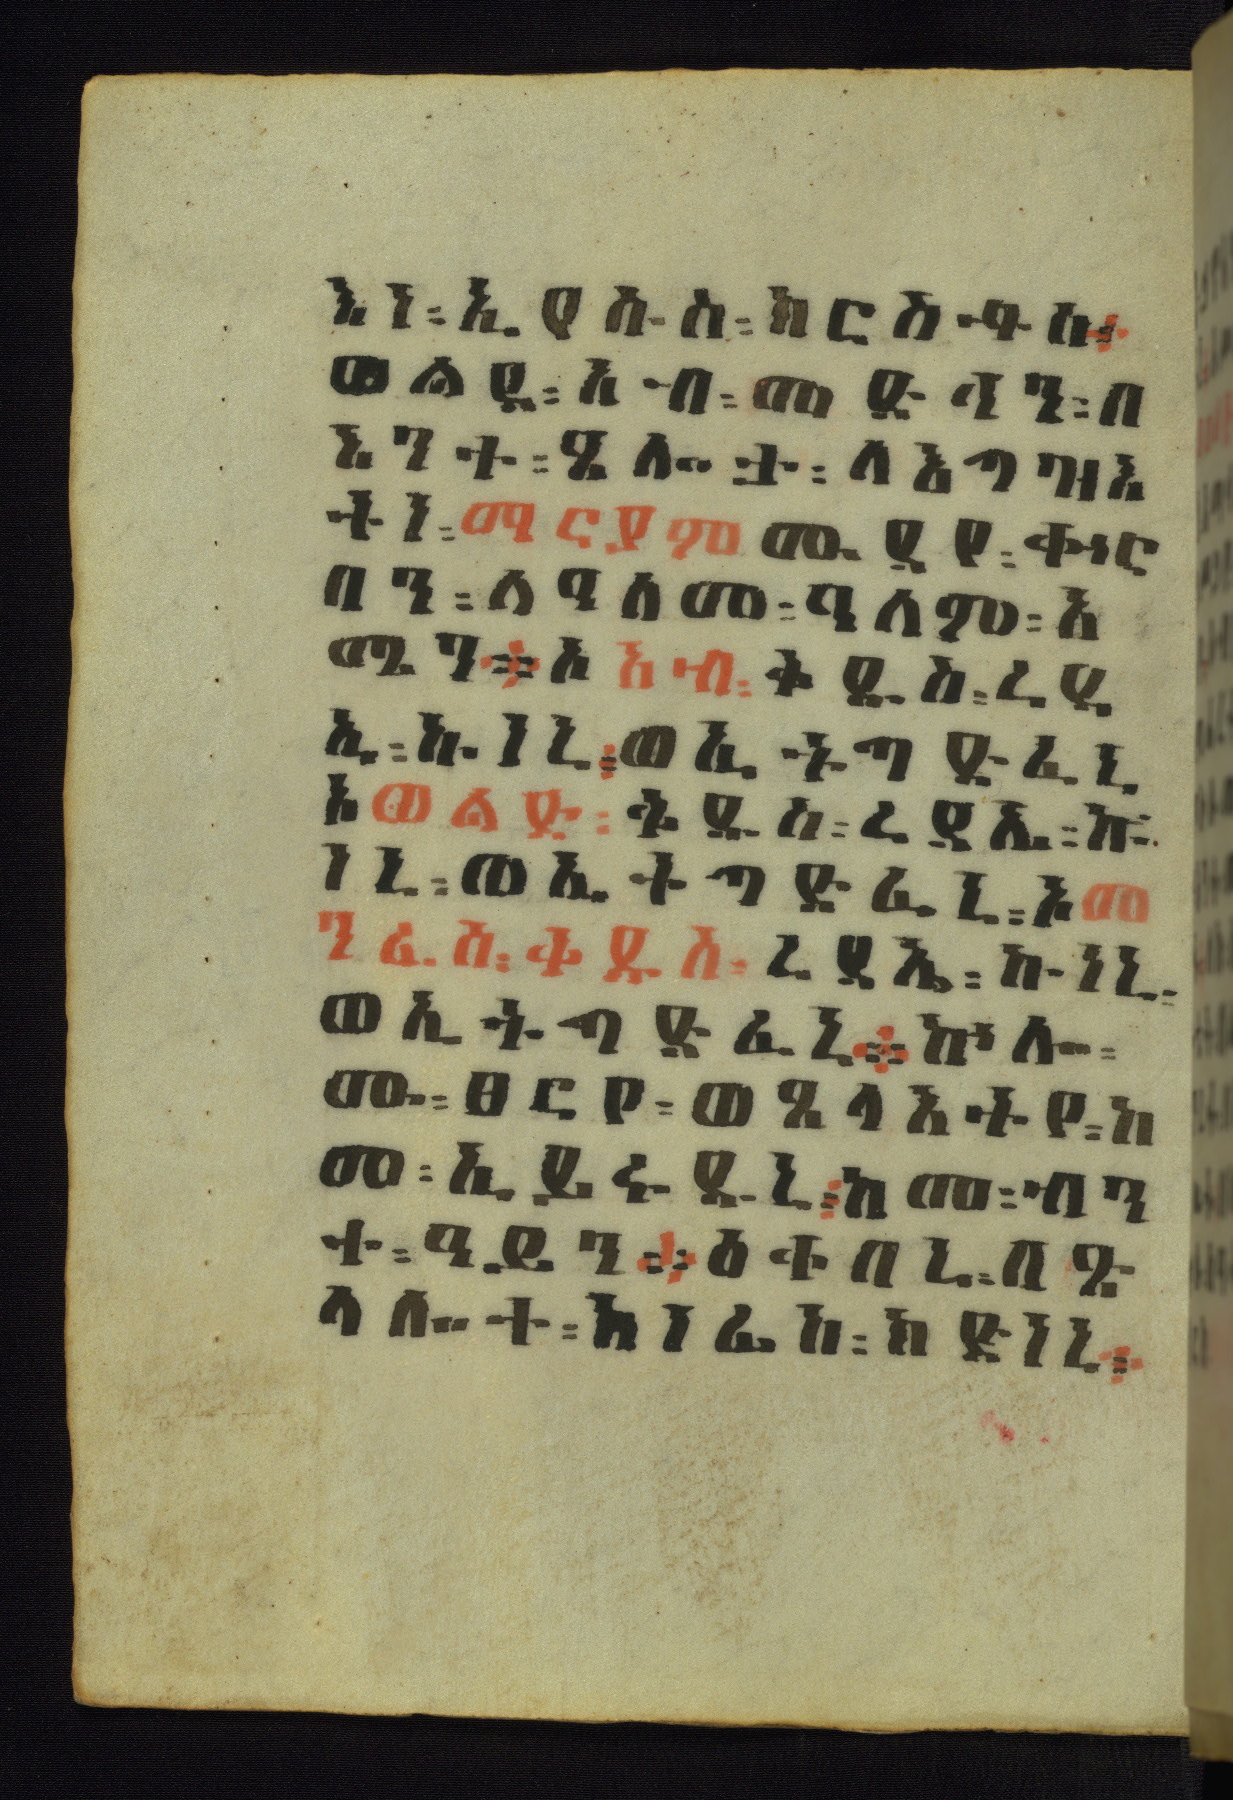 እነ፡ኢየሱስ፡ክርስቶስ፨
ወልደ፡አብ፡መድኅን፡በ
እንተ፡ጸሎታ፡ለእግዝእ
ትነ፡ማርያም ሙዳየ፡ቍር
ባን፡ለዓለመ፡ዓለም፡አ
ሜን፨ኦ አብ፡ቅዱስ፡ረዳ
ኢ፡ኩነኒ፡ወኢትግድፈኒ
ኦወልድ፡ቅዱስ፡ረዳኢ፡ኩ
ነኒ፡ወኢትግድፈኒ፡ኦመ
ንፈስ፡ቅዱስ፡ረዳኢ፡ኩነኒ፡
ወኢትግድፈኒ፨ኵሎ፡
ሙ፡ፀርየ፡ወጸላእትየ፡ከ
መ፡ኢይሩዱኒ፡ከመ፡ብን
ተ፡ዓይን፨ዕቀበኒ፡በጽ
ላሎተ፡ክነፊከ፡ክድነኒ፨